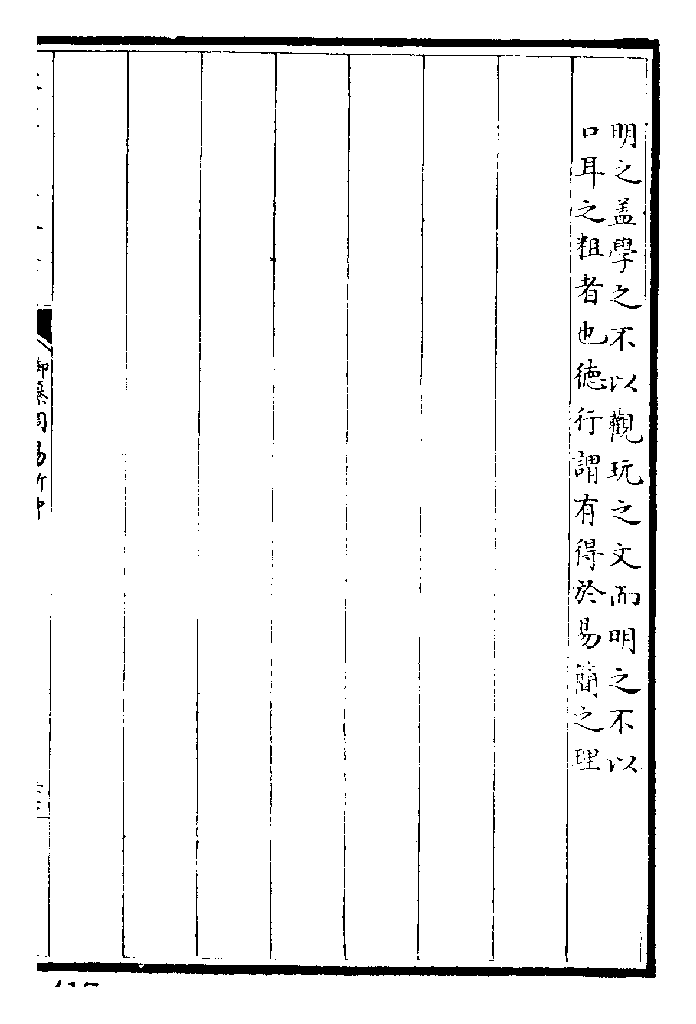 明之盖學之不以觀玩之文而明之不以
口耳之粗者也德行謂有得於易簡之理
御纂周易折中